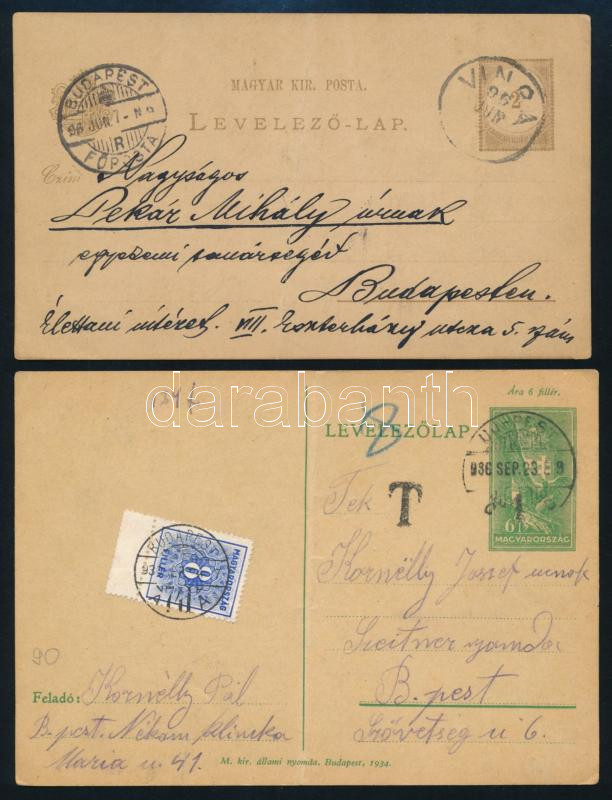 MAGYAR KIR. POSTA.
LEVELEZŐ-LAP.
BUDAPEST
96 JUN 7 - N 6
R
FŐPOSTA
VINGA
96
JUN
2
Czím
Nagyságos
Pekár Mihály úrnak
egyetemi tanársegéd
Budapesten.
Élettani intézet. VIII. Eszterházy utcza 5. szám
darabanth
Ára 6 fillér.
LEVELEZŐLAP
8
T
BUDAPEST
936 SEP. 23. E 9
6f
MAGYARORSZÁG
BUDAPEST
93
MAGYARORSZÁG
8
FILLÉR
90
Tek
Kornélly József urnak
B.pest
Szövetség u 6.
Feladó: Kornélly Pál
B.pest. Nékám klinika
Maria u. 41.
M. kir. állami nyomda. Budapest, 1934.